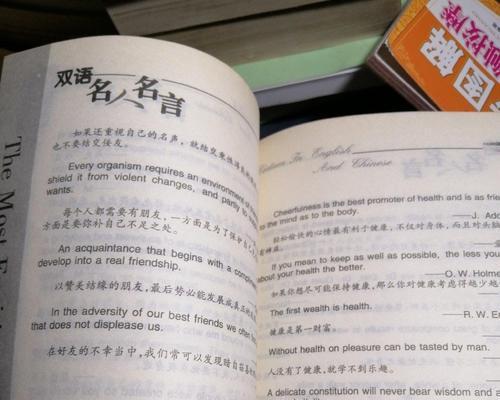 双语
名人名言
如果还重视自己的名声，就结交秉性
也不要结交佞友。
Every organism requires an environment of
shield it from violent changes, and partly to
wants.
每个人都需要有朋友，一方面是为了保护自己
方面是要弥补自己不足之处。
An acquaintance that begins with a
develop into a real friendship.
以赞美结缘的朋友，最后势必能发展成真正的
In the adversity of our best friends we often
that does not displease us.
在好友的不幸当中，我们常可以发现暗自
The Most
In English
And Chinese
名人名言
Cheerfulness is the best promoter of health and is as
to the mind as to the body.
——J.
轻松愉快的心情最有利于健康，不仅对身体，而且对头脑
If you mean to keep as well as possible, the less you
about your health the better.
——O. W. Holm
如果你想尽可能保持健康，那么你对健康考虑得越少越
The first wealth is health.
——R. W.
健康是第一财富。
Without health on pleasure can be tasted by man.
人没有了健康，就学不到乐趣。
A delicate constitution will never bear wisdom and
图解
按摩